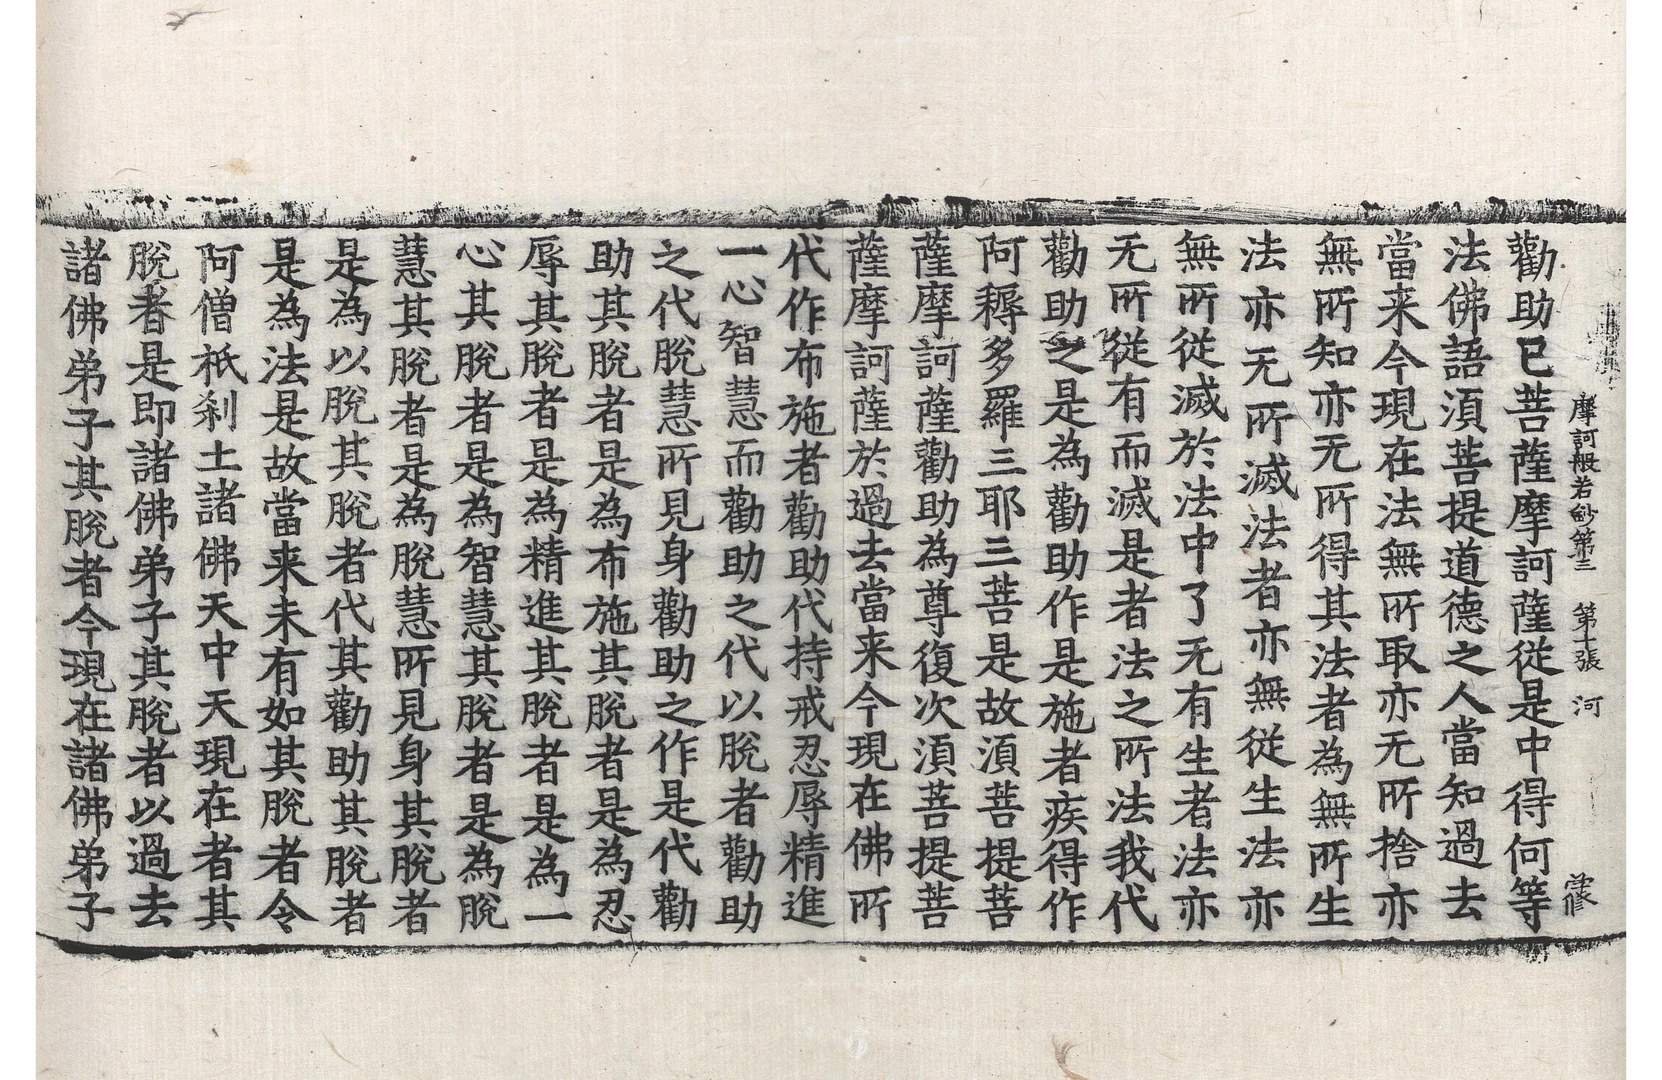 摩訶般若鈔第三 第十張 河
勸助已菩薩摩訶薩從是中得何等
法佛語須菩提道德之人當知過去
當来今現在法無所取亦无所捨亦
無所知亦无所得其法者為無所生
法亦无所滅法者亦無從生法亦
無所從滅於法中了无有生者法亦
无所從有而滅是者法之所法我代
勸助之是為勸助作是施者疾得作
阿耨多羅三耶三菩是故須菩提菩
薩摩訶薩勸助為尊復次須菩提菩
薩摩訶薩於過去當来今現在佛所
代作布施者勸助代持戒忍辱精進
一心智慧而勸助之代以脫者勸助
之代脫慧所見身勸助之作是代勸
助其脫者是為布施其脫者是為忍
辱其脫者是為精進其脫者是為一
心其脫者是為智慧其脫者是為脫
慧其脫者是為脫慧所見身其脫者
是為以脫其脫者代其勸助其脫者
是為法是故當来未有如其脫者令
阿僧祇剎土諸佛天中天現在者其
脫者是即諸佛弟子其脫者以過去
諸佛弟子其脫者今現在諸佛弟子